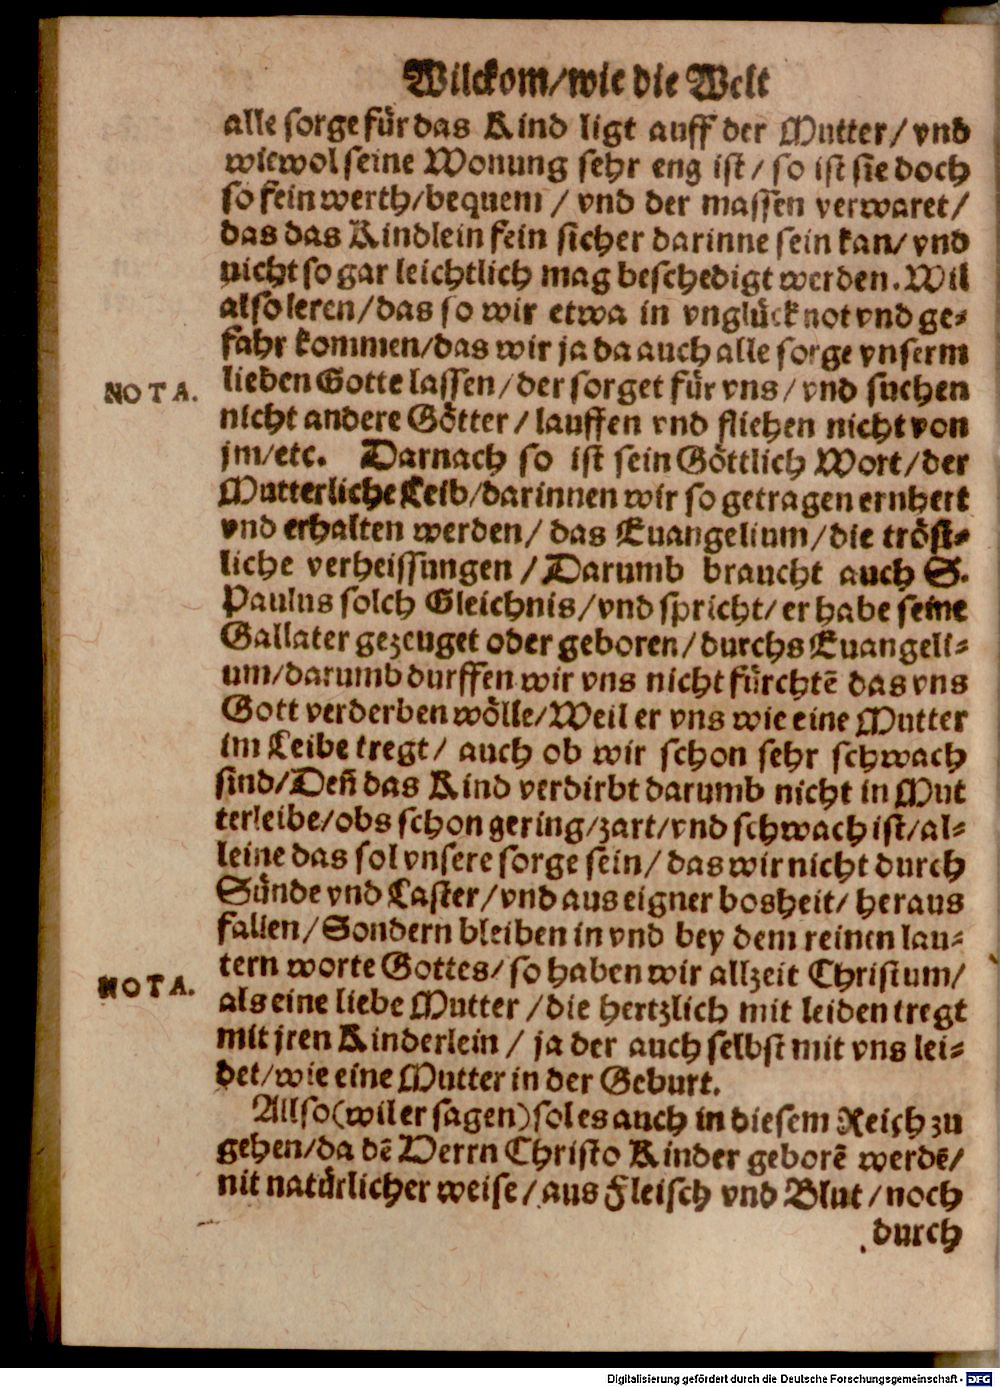 Wilckom/wie die Welt
alle sorge für das Kind ligt auff der Mutter/vnd
wiewol seine Wonung sehr eng ist/so ist sie doch
so fein werth/bequem/vnd der massen verwaret/
das das Kindlein fein sicher darinne sein kan/vnd
nicht so gar leichtlich mag beschedigt werden. Wil
also leren/das so wir etwa in vnglück not vnd ge-
fahr kommen/das wir ja da auch alle sorge vnserm
NOTA. lieben Gotte lassen/der sorget für vns/vnd suchen
nicht andere Götter/lauffen vnd fliehen nicht von
jm/etc. Darnach so ist sein Göttlich Wort/der
Mutterliche Leib/darinnen wir so getragen ernhert
vnd erhalten werden/das Euangelium/die tröst-
liche verheissungen/Darumb braucht auch S.
Paulus solch Gleichnis/vnd spricht/er habe seine
Gallater gezeuget oder geboren/durchs Euangeli-
um/darumb durffen wir vns nicht fürchtē das vns
Gott verderben wölle/Weil er vns wie eine Mutter
im Leibe tregt/auch ob wir schon sehr schwach
sind/Deñ das Kind verdirbt darumb nicht in Mut
terleibe/obs schon gering/zart/vnd schwach ist/al-
leine das sol vnsere sorge sein/das wir nicht durch
Sünde vnd Laster/vnd aus eigner bosheit/heraus
fallen/Sondern bleiben in vnd bey dem reinen lau-
tern worte Gottes/so haben wir allzeit Christum/
NOTA. als eine liebe Mutter/die hertzlich mit leiden tregt
mit jren Kinderlein/ja der auch selbst mit vns lei-
det/wie eine Mutter in der Geburt.
Allso(wil er sagen)sol es auch in diesem Reich zu
gehen/da dē Herrn Christo Kinder geborē werdē/
nit natürlicher weise/aus Fleisch vnd Blut/noch
durch
Digitalisierung gefördert durch die Deutsche Forschungsgemeinschaft - DFG